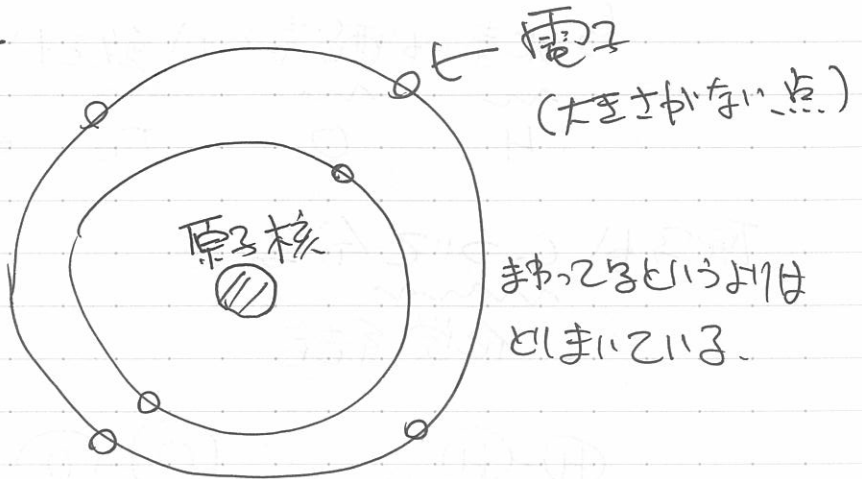 電子
(大きさがない点)
原子核
まわってるというよりは
とりまいている.